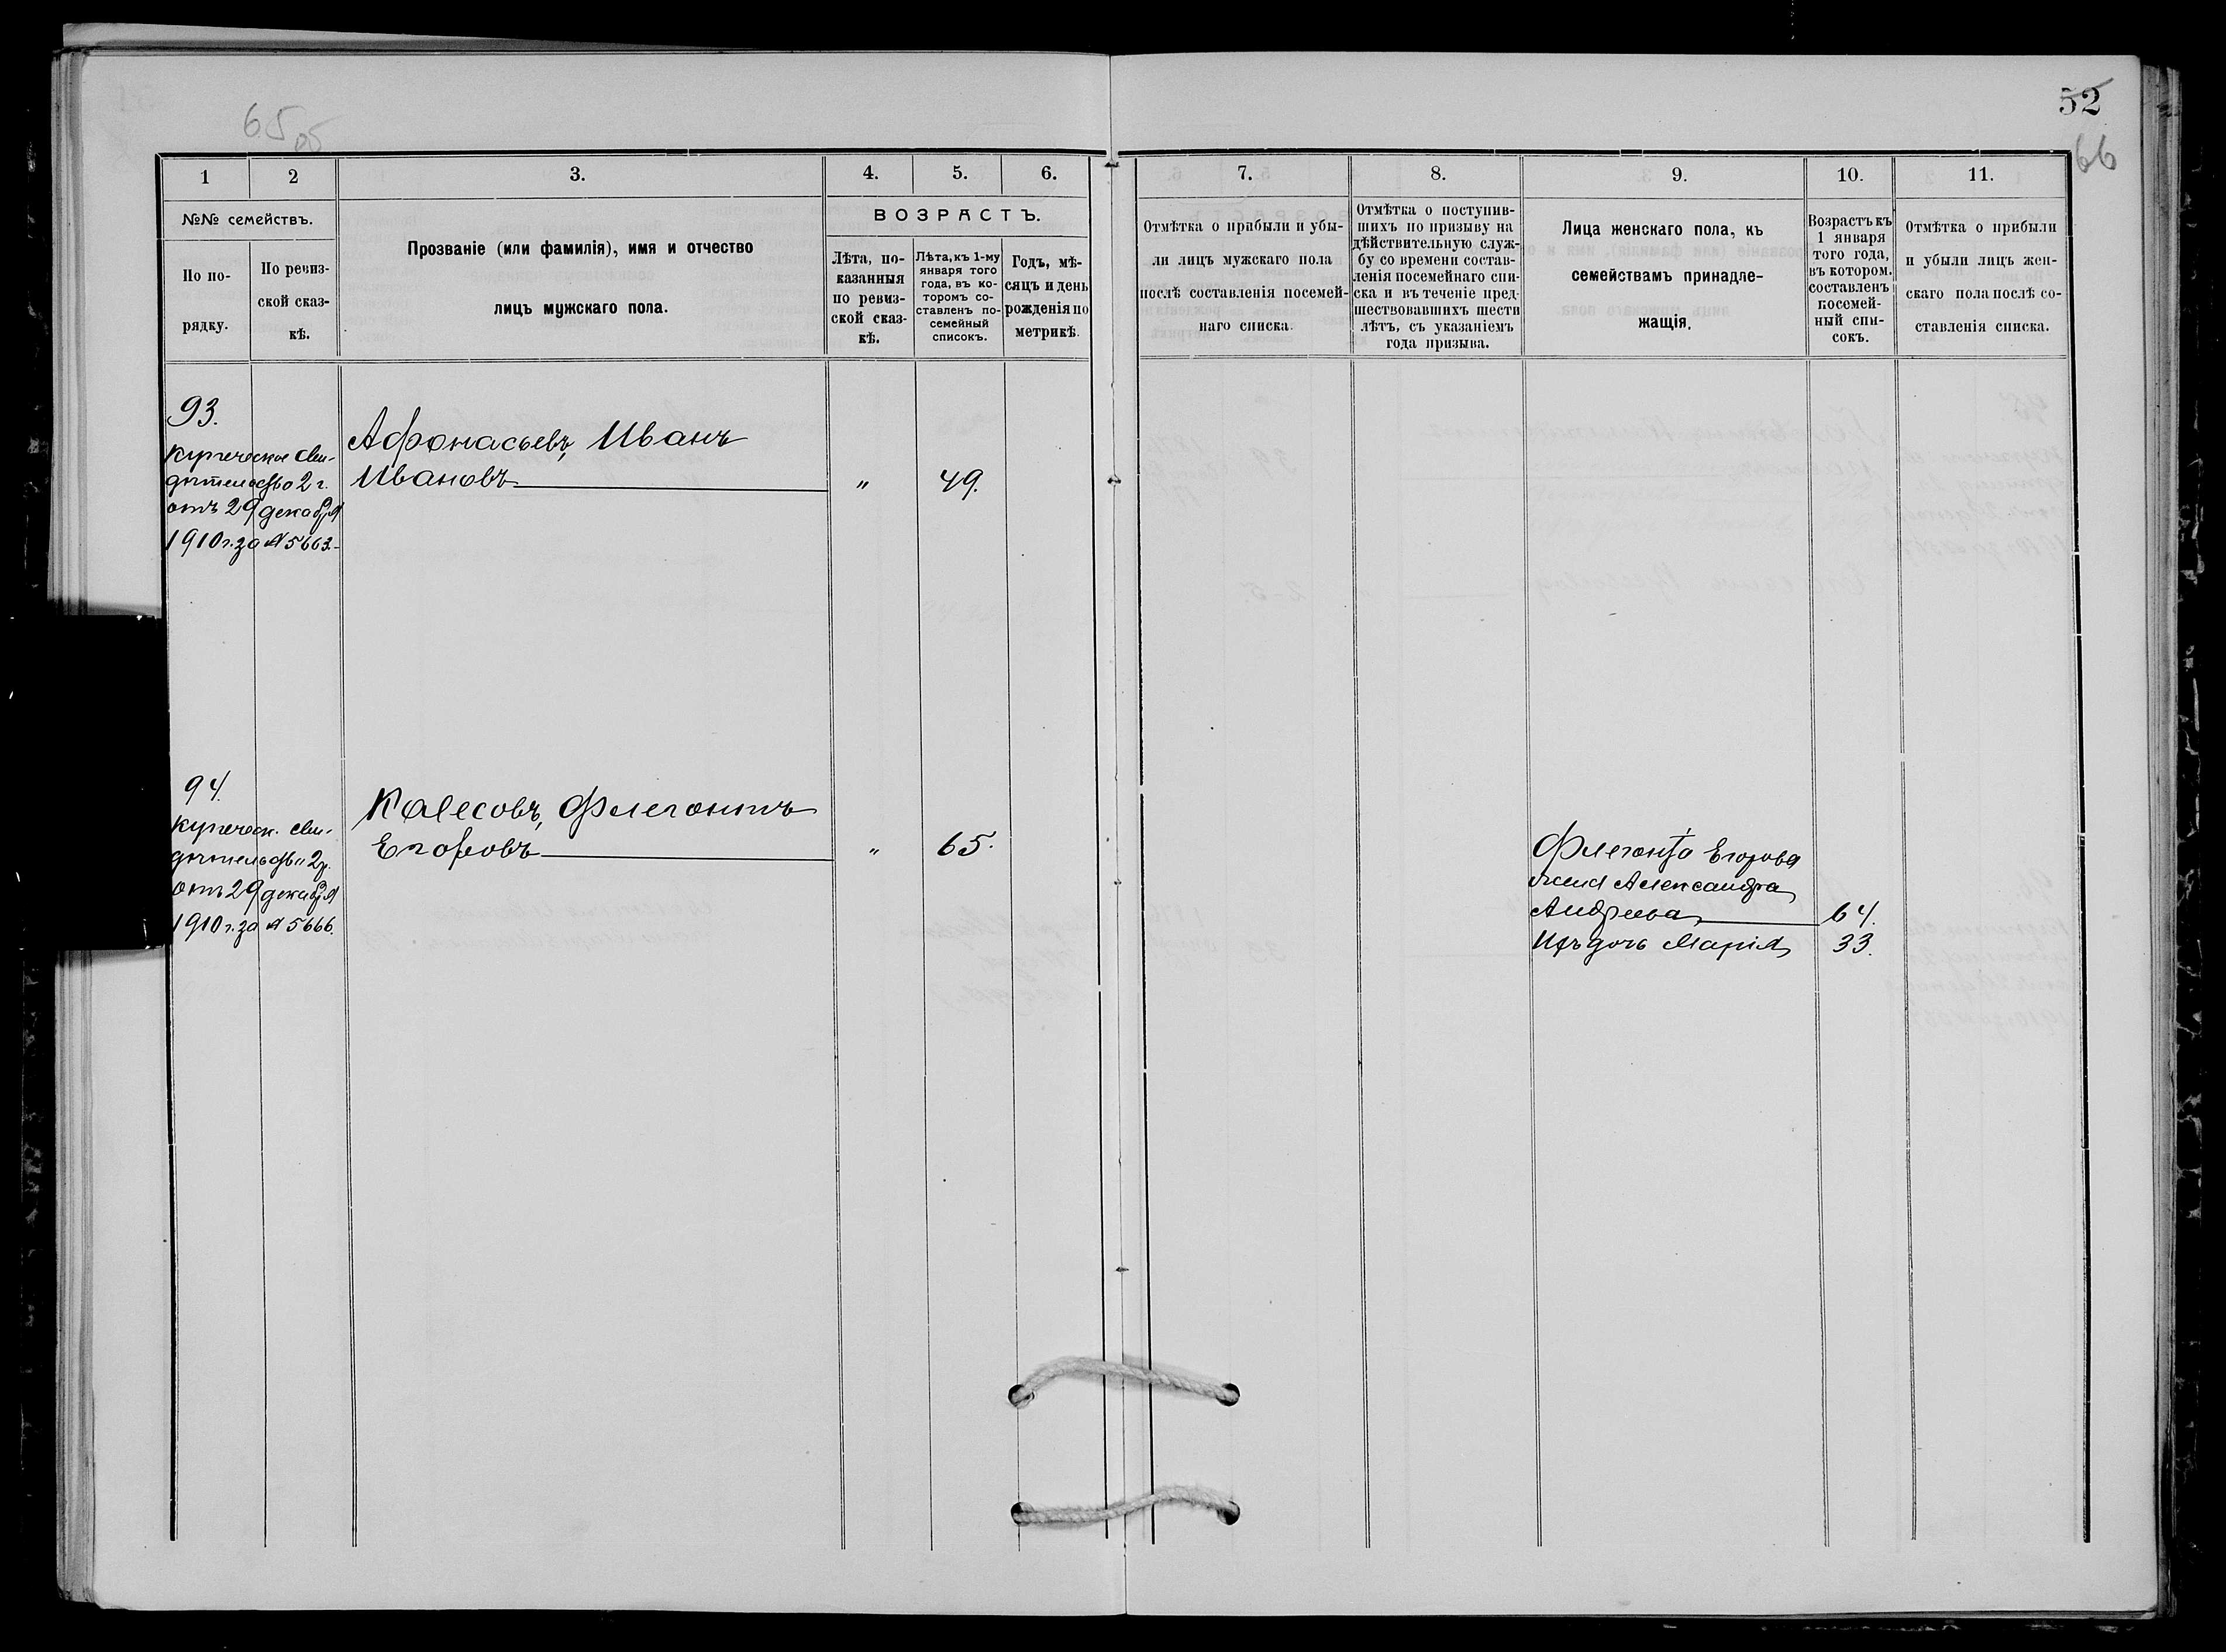 65 об
52
66
1
2
3.
4.
5.
6.
7.
8.
9.
10.
11.
№№ семействъ.
По по-
рядку.
По ревиз-
ской сказ-
кѣ.
Прозваніе (или фамилія), имя и отчество
лицъ мужскаго пола.
ВОЗРАСТЪ.
Лѣта, по-
казанныя
по ревиз-
ской сказ-
кѣ.
Лѣта, къ 1-му
января того
года, въ ко-
торомъ со-
ставленъ по-
семейный
списокъ.
Годъ, мѣ-
сяцъ и день
рожденія по
метрикѣ.
Отмѣтка о прибыли и убы-
ли лицъ мужскаго пола
послѣ составленія посемей-
наго списка.
Отмѣтка о поступив-
шихъ по призыву на
дѣйствительную служ-
бу со времени состав-
ленія посемейнаго спи-
ска и въ теченіе пред-
шествовавшихъ шести
лѣтъ, съ указаніемъ
года призыва.
Лица женскаго пола, къ
семействамъ принадле-
жащія.
Возрастъ къ
1 января
того года,
въ котором.
составленъ
посемей-
ный спи-
сокъ.
Отмѣтка о прибыли
и убыли лицъ жен-
скаго пола послѣ со-
ставленія списка.
93.
Купеческое сви-
дѣтельство 2 г.
отъ 29 декабря
1910 г. за № 5663.
Афонасьевъ, Иванъ
Ивановъ " 49.
94.
Купеческ. сви-
дѣтельство 2 г.
отъ 29 декабря
1910 г. за № 5666.
Калесовъ, Флегонтъ
Егоровъ " 65.
Флегонта Егорова
жена Александра
Андреева 64.
Ихъ дочь Марія 33.